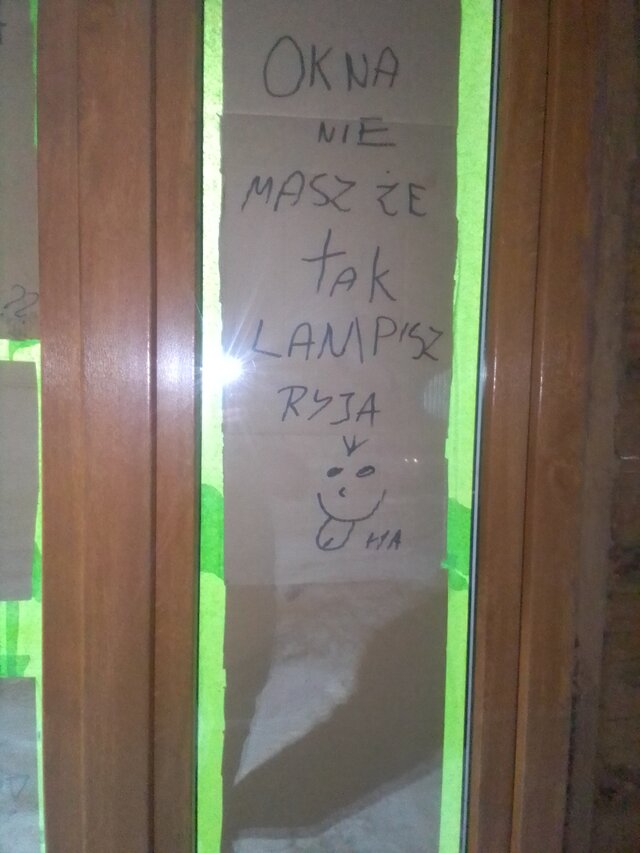 OKNA
NIE
MASZ ŻE
tAK
LAMPISZ
RYJA
HA